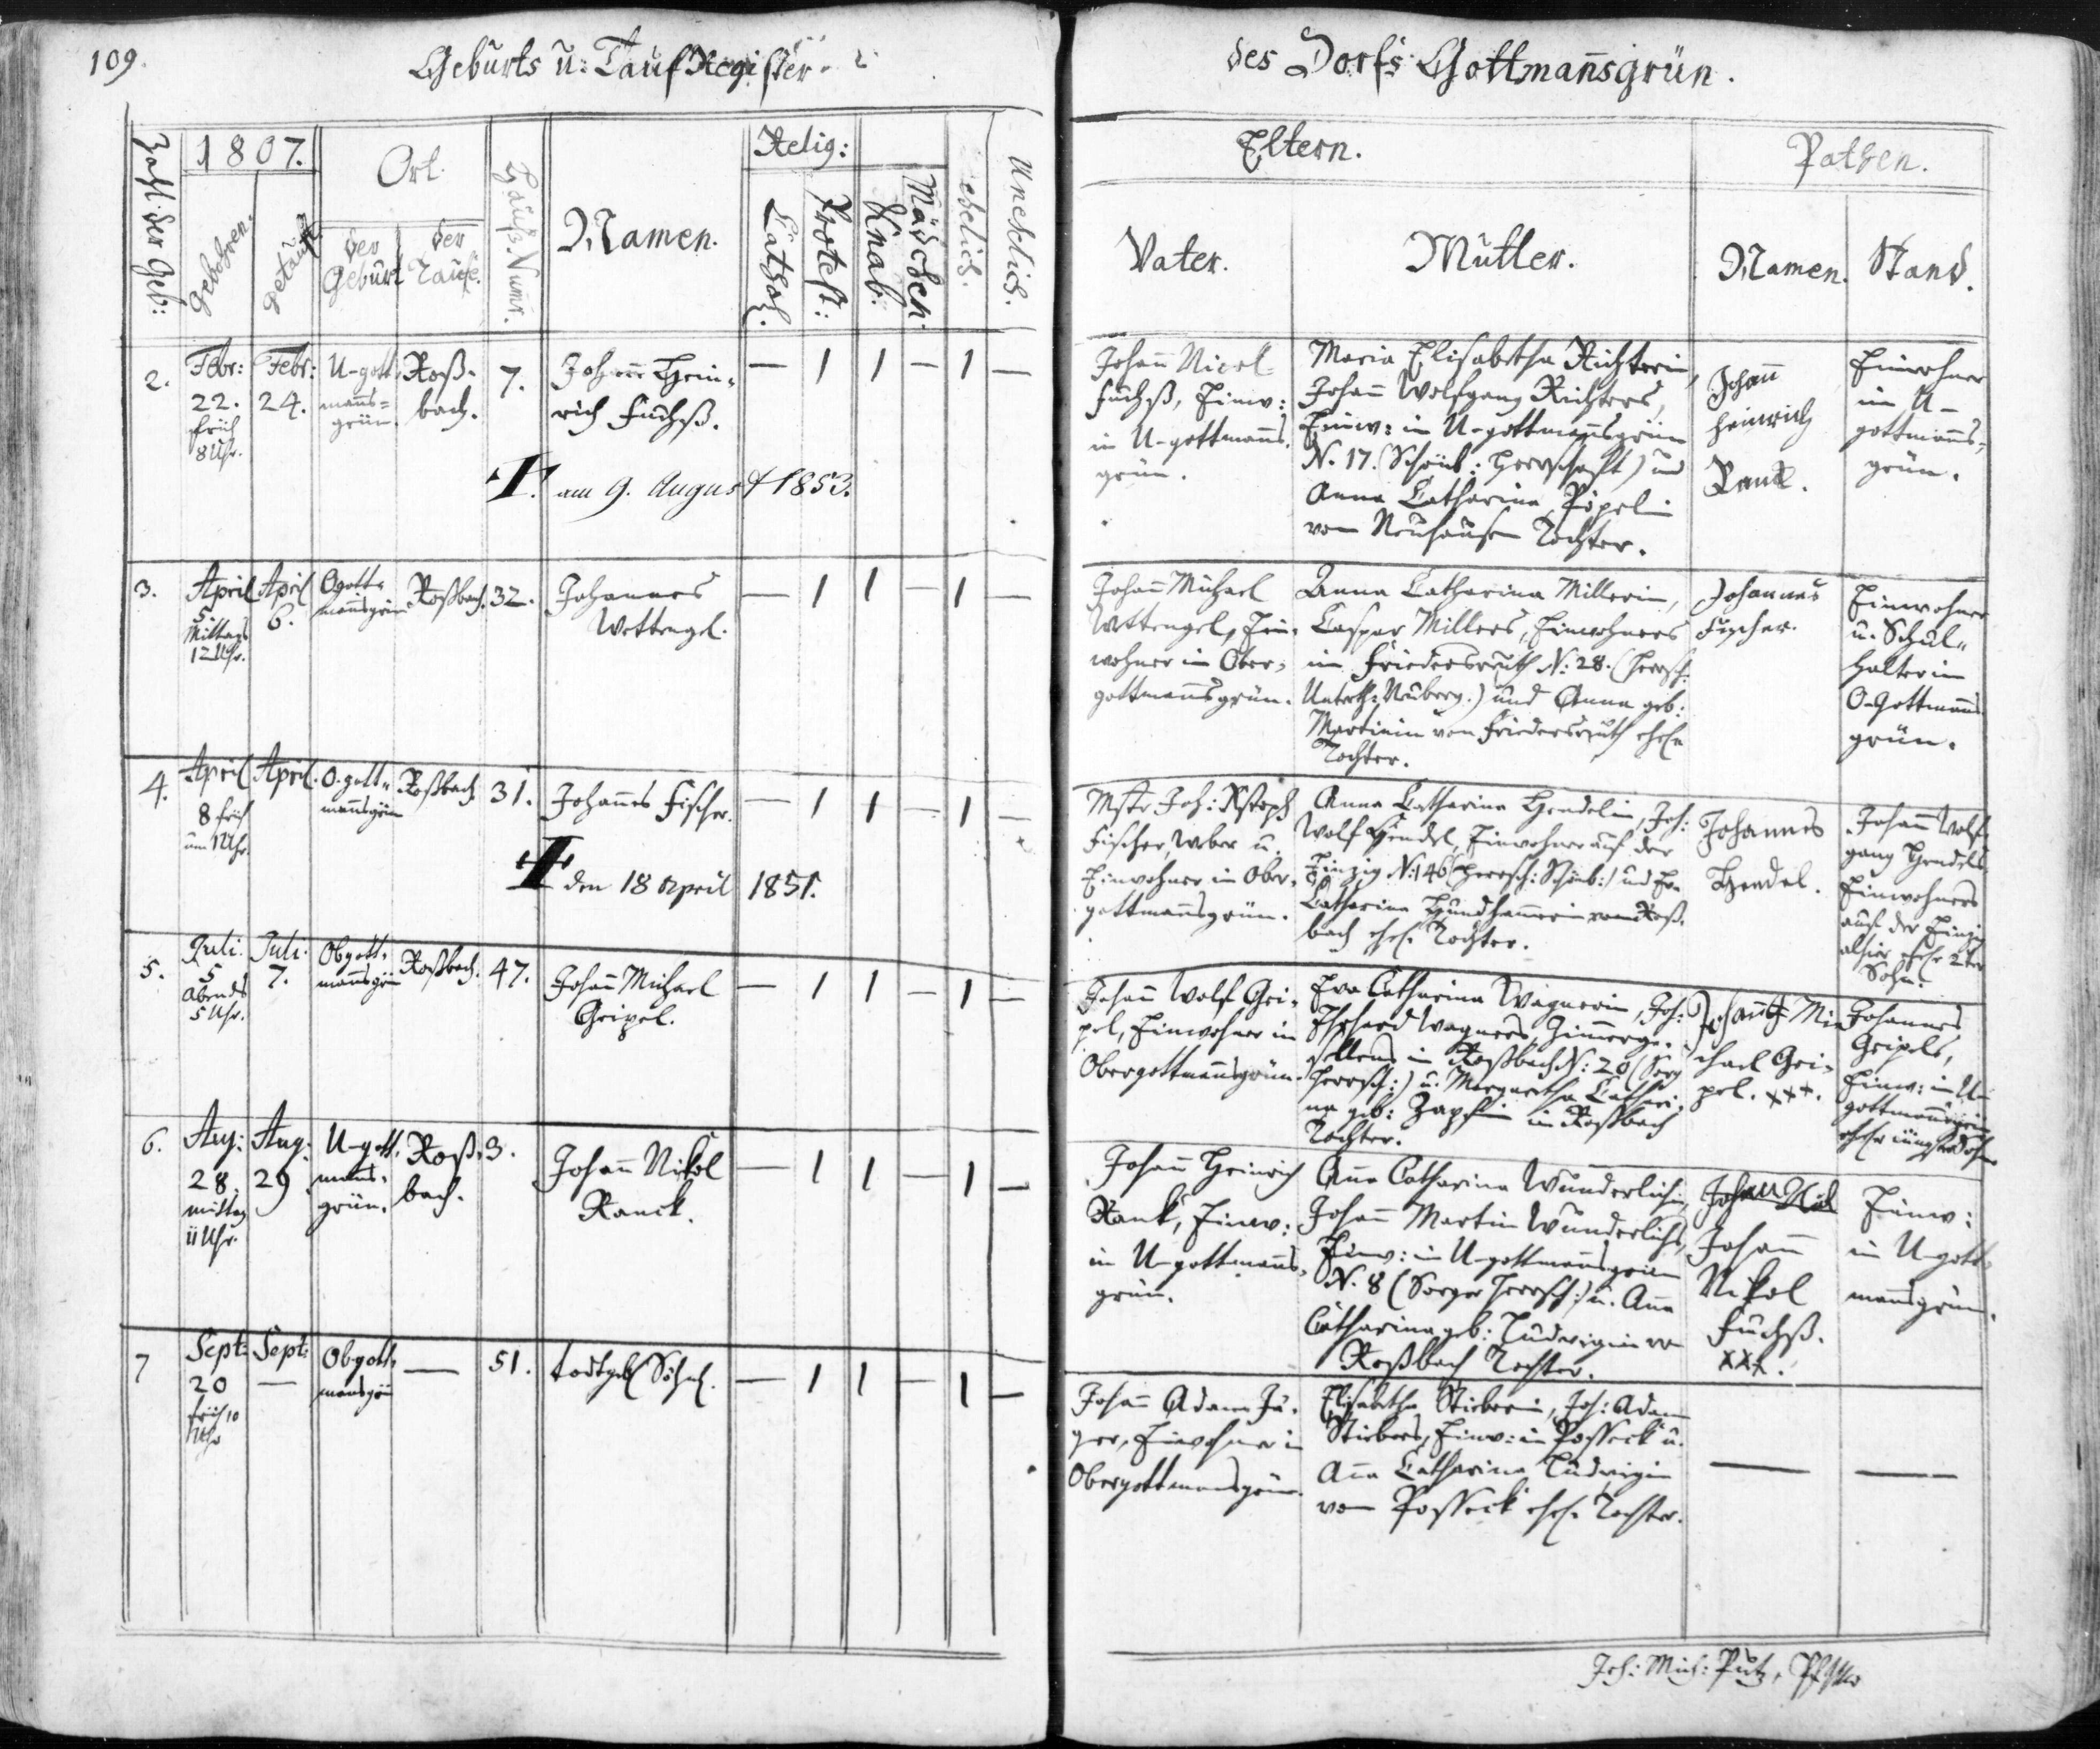 109.
Geburts u: Tauf Register
des Dorfs Gottmañsgrün.
Zahl der Geb:
1807.
Gebohren.
getauft
Ort.
der Geburt
der Taufe.
Hauß-Numr.
Namen.
Relig:
Cathol.
Protest:
Knab:
Mädchen.
ehelich.
Unehlich.
Eltern.
Vater.
Mutter.
Pathen.
Namen.
Stand.
2.
Febr:
22.
früh
8 Uhr.
Febr:
24.
U-gott=
mañs=
grün.
Roß-
bach.
7.
Johann Hein-
rich Fuchß.
— 1 1 — 1 —
am 9. August 1853.
Johañ Nicol
Fuchß, Einw:
in U-gottmañs-
grün.
Maria Elisabetha Richterin,
Johañ Wolfgang Richters,
Einw: in U-gottmañsgrün
N. 17. (Schönb: Herrschaft) und
Anna Catharina Pöpelin
von Neuhausen Tochter.
Johañ
Heinrich
Rank.
Einwohner
in U-
gottmañs-
grün.
3.
April
5.
Mittags
12 Uhr.
April
6.
Ogott=
mañsgrün
Roßbach.
32.
Johannes
Wettengel.
— 1 1 — 1 —
Johañ Michael
Wettengel, Ein-
wohner in Ober-
gottmañsgrün.
Anna Catharina Millerin,
Caspar Millers, Einwohners
in Friedersreuth N: 28. (Herrsch:
Unterth: Neuberg.) und Anna geb:
Martinin von Friedersreuth ehel.
Tochter.
Johannes
Fischer.
Einwohner
u. Schul-
halter in
O-Gottmañs-
grün.
4.
April
8 früh
um 1 Uhr.
April.
O. gott=
mañsgrün
Roßbach
31.
Johañes Fischer.
— 1 1 — 1 —
den 18 April 1851.
Mstr Joh: Xstoph
Fischer, Weber u.
Einwohner in Ober-
gottmañsgrün.
Anna Catharina Hendelin, Joh:
Wolf Hendel, Einwohner auf der
N: 146 (Herrsch: Schönb:) und
Catharina Hundhammerin von Roß-
bach ehel. Tochter.
Johannes
Hendel.
Johañ Wolf-
gang Hendels
Einwohners
auf der
alhier ehel. 2ter
Sohn.
5.
Juli.
5
Abends
5 Uhr.
Juli.
7.
Obgott=
mañsgrün
Roßbach.
47.
Johañ Michael
Geipel.
— 1 1 — 1 —
Johañ Wolf Gei-
pel, Einwohner in
Obergottmañsgrün.
Eva Catharina Wagnerin, Joh:
Erhard Wagners, Zimerge-
sellens in Roßbach N: 20 (Sorg
Herrsch:) u. Margaretha Cathari-
na geb: Zapfin in Roßbach
Tochter.
Johañ Mi-
chael Gei-
pel. xxx.
Johannes
Geipels,
Einw: in U-
gottmañsgrün
ehel. jüngster Sohn
6.
Aug:
28.
mittag
11 Uhr.
Aug.
29
U-gott-
mañs-
grün.
Roß-
bach.
3.
Johañ Nikol
Ranck.
— 1 1 — 1 —
Johañ Heinrich
Rank, Einw:
in U-gottmañs-
grün.
Aña Catharina Wunderlichin,
Johañ Martin Wunderlichs,
Einw: in U-gottmañsgrün
N. 8 (Sorger Herrsch:) u. Aña
Catharina geb: Ludwigin von
Roßbach Tochter.
Johan Nik
Johañ
Nikol
Fuchß.
xxx.
Einw:
in U-gott-
mañsgrün.
7
Sept:
20
früh 10
Uhr
Sept:
—
Obgott=
mansgrün
—
51.
todtgeb. Söhnl.
— 1 1 — 1 —
Johañ Adam Jä-
ger, Einwohner in
Obergottmansgrün.
Elisabetha Stieberin, Joh: Adam
Stiebers, Einw: in Posseck u.
Aña Catharina Ludwigin
von Posseck ehel. Tochter.
— —
Joh: Mich: Putz,